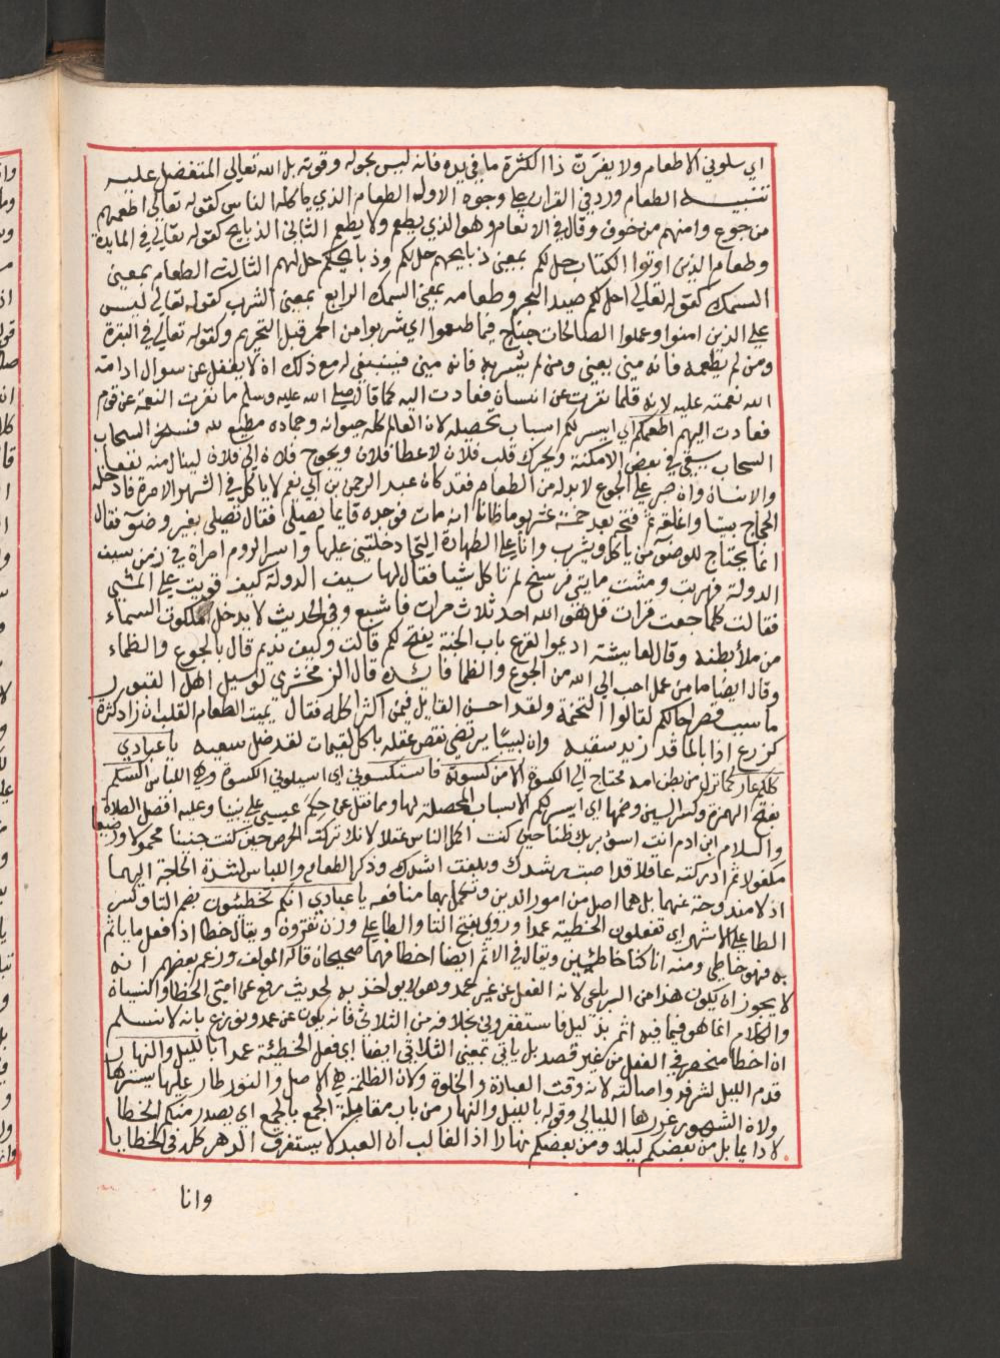 اي سلوني الاطعام ولا يغرن ذا الكثرة ما في يده فانه ليس بحوله وقوته بل الله تعالى المتفضل عليه
تنبيه الطعام ورد في القران على وجوه الاول الطعام الذي ياكله الناس كقوله تعالى اطعمهم
من جوع وامنهم من خوف وقال في الانعام وهو الذي يطعم ولا يطعم الثاني الذبايح كقوله تعالى في المايدة
وطعام الذين اوتوا الكتاب حل لكم بمعنى ذبايحهم حل لكم وذبايحكم حل لهم الثالث الطعام بمعنى
السمك كقوله تعالى احل لكم صيد البحر وطعامه بمعنى السمك الرابع بمعنى الشرب كقوله تعالى ليس
على الذين امنوا وعملوا الصالحات جناح فيما طعموا اي شربوا من الخمر قبل التحريم وكقوله تعالى في البقرة
ومن لم يطعمه فانه مني يعني ومن لم يشربه فانه مني فينبغي له مع ذلك ان لا يغفل عن سوال ادامة
الله نعمته عليه لانه قلما نفرت عن انسان فعادت اليه كما قال صلى الله عليه وسلم ما نفرت النعمة عن قوم
فعادت اليهم اطعمكم اي ايسر لكم اسباب تحصيله لان العالم كله حيوانه وجماده مطيع لله فسخر السحاب
السحاب يسقي في بعض الامكنة ويحرك قلب فلان لاعطا فلان ويحوج فلان الى فلان لينال منه نفعا
والانسان وان صبر على الجوع لا بد له من الطعام فقد كان عبد الرحمن بن ابي نعم لا ياكل في الشهر الا مرة فادخله
الحجاج بيتا واغلقه ثم فتحه بعد خمسة عشر يوما ظانا انه مات فوجده قايما يصلي فقال تصلي بغير وضوء فقال
انما يحتاج للوضوء من ياكل ويشرب وانا على الطهارة التي ادخلتني عليها واسر الروم امراة في زمن سيف
الدولة فهربت ومشت مايتي فرسخ لم تاكل شيا فقال لها سيف الدولة كيف قويت على المشي
فقالت كلما جعت قرات قل هو الله احد ثلاث مرات فاشبع وفي الحديث لا يدخل ملكوت السماء
من ملأ بطنه وقال لعايشة اديموا قرع باب الجنة يفتح لكم قالت وكيف نديم قال بالجوع والظماء
وقال ايضا ما من عمل احب الى الله من الجوع والظما فايدة قال الزمخشري لو سيل اهل القبور
ما سبب قصر اجالكم لقالوا التخمة ولقد احسن القايل فيمن اكثر اكله فقال يميت الطعام القلب ان زاد كثرة
كزرع اذا بالما قد زيد سقيه وان لبيبا يرتضي نقص عقله باكل لقيمات لقد ضل سعيه يا عبادي
كلكم عار كما نزل من بطن امه محتاج الى الكسوة الا من كسوته فاستكسوني اي اسيلوني الكسوة وهي اللباس اكسكم
بفتح الهمزة وكسر السين وضمها اي ايسر لكم الاسباب المحصلة لها ومما نقل عن حكم عيسى على نبينا وعليه افضل الصلاة
والسلام ابن ادم انت اسوء بربك ظنا حين كنت اكمل الناس عقلا لانك تركت الحرص حين كنت جنينا محمولا ورضيعا
مكفولا ثم ادركته عاقلا قد اصبت رشدك وبلغت اشدك وذكر الطعام واللباس لشدة الحاجة اليهما
اذ لا مندوحة عنهما بل هما اصل من امور الدين وتكمل بهما منافعه يا عبادي انكم تخطئون بضم التا وكسر
الطا على الاشهر اي تفعلون الخطية عمدا وروي بفتح التا والطا على وزن تقرؤن ويقال خطا اذا فعل ما ياثم
به فهو خاطي ومنه انا كنا خاطئين ويقال في الاثم ايضا اخطا فهما صحيحان قاله المولف وزعم بعضهم انه
لا يجوز ان يكون هذا من الرباعي لانه الفعل عن غير عمد وهو لا يواخذ به لحديث رفع عن امتي الخطا والنسيان
والكلام انما هو فيما فيه اثم بدليل فاستغفروني بخلافه من الثلاثي فانه يكون عن عمد ونوزع بانه لا نسلم
ان اخطا منحصر في الفعل من غير قصد بل ياتي بمعنى الثلاثي ايضا اي فعل الخطيئة عمدا بالليل والنهار
قدم الليل لشرفه واصالته لانه وقت العبادة والخلوة ولان الظلمة هي الاصل والنور طار عليها يسترها
ولان الشهور غررها الليالي وقوله بالليل والنهار من باب مقابلة الجمع بالجمع اي يصدر منكم الخطا
لا دايما بل من بعضكم ليلا ومن بعضكم نهارا اذ الغالب ان العبد لا يستغرق الدهر كله في الخطايا
وانا